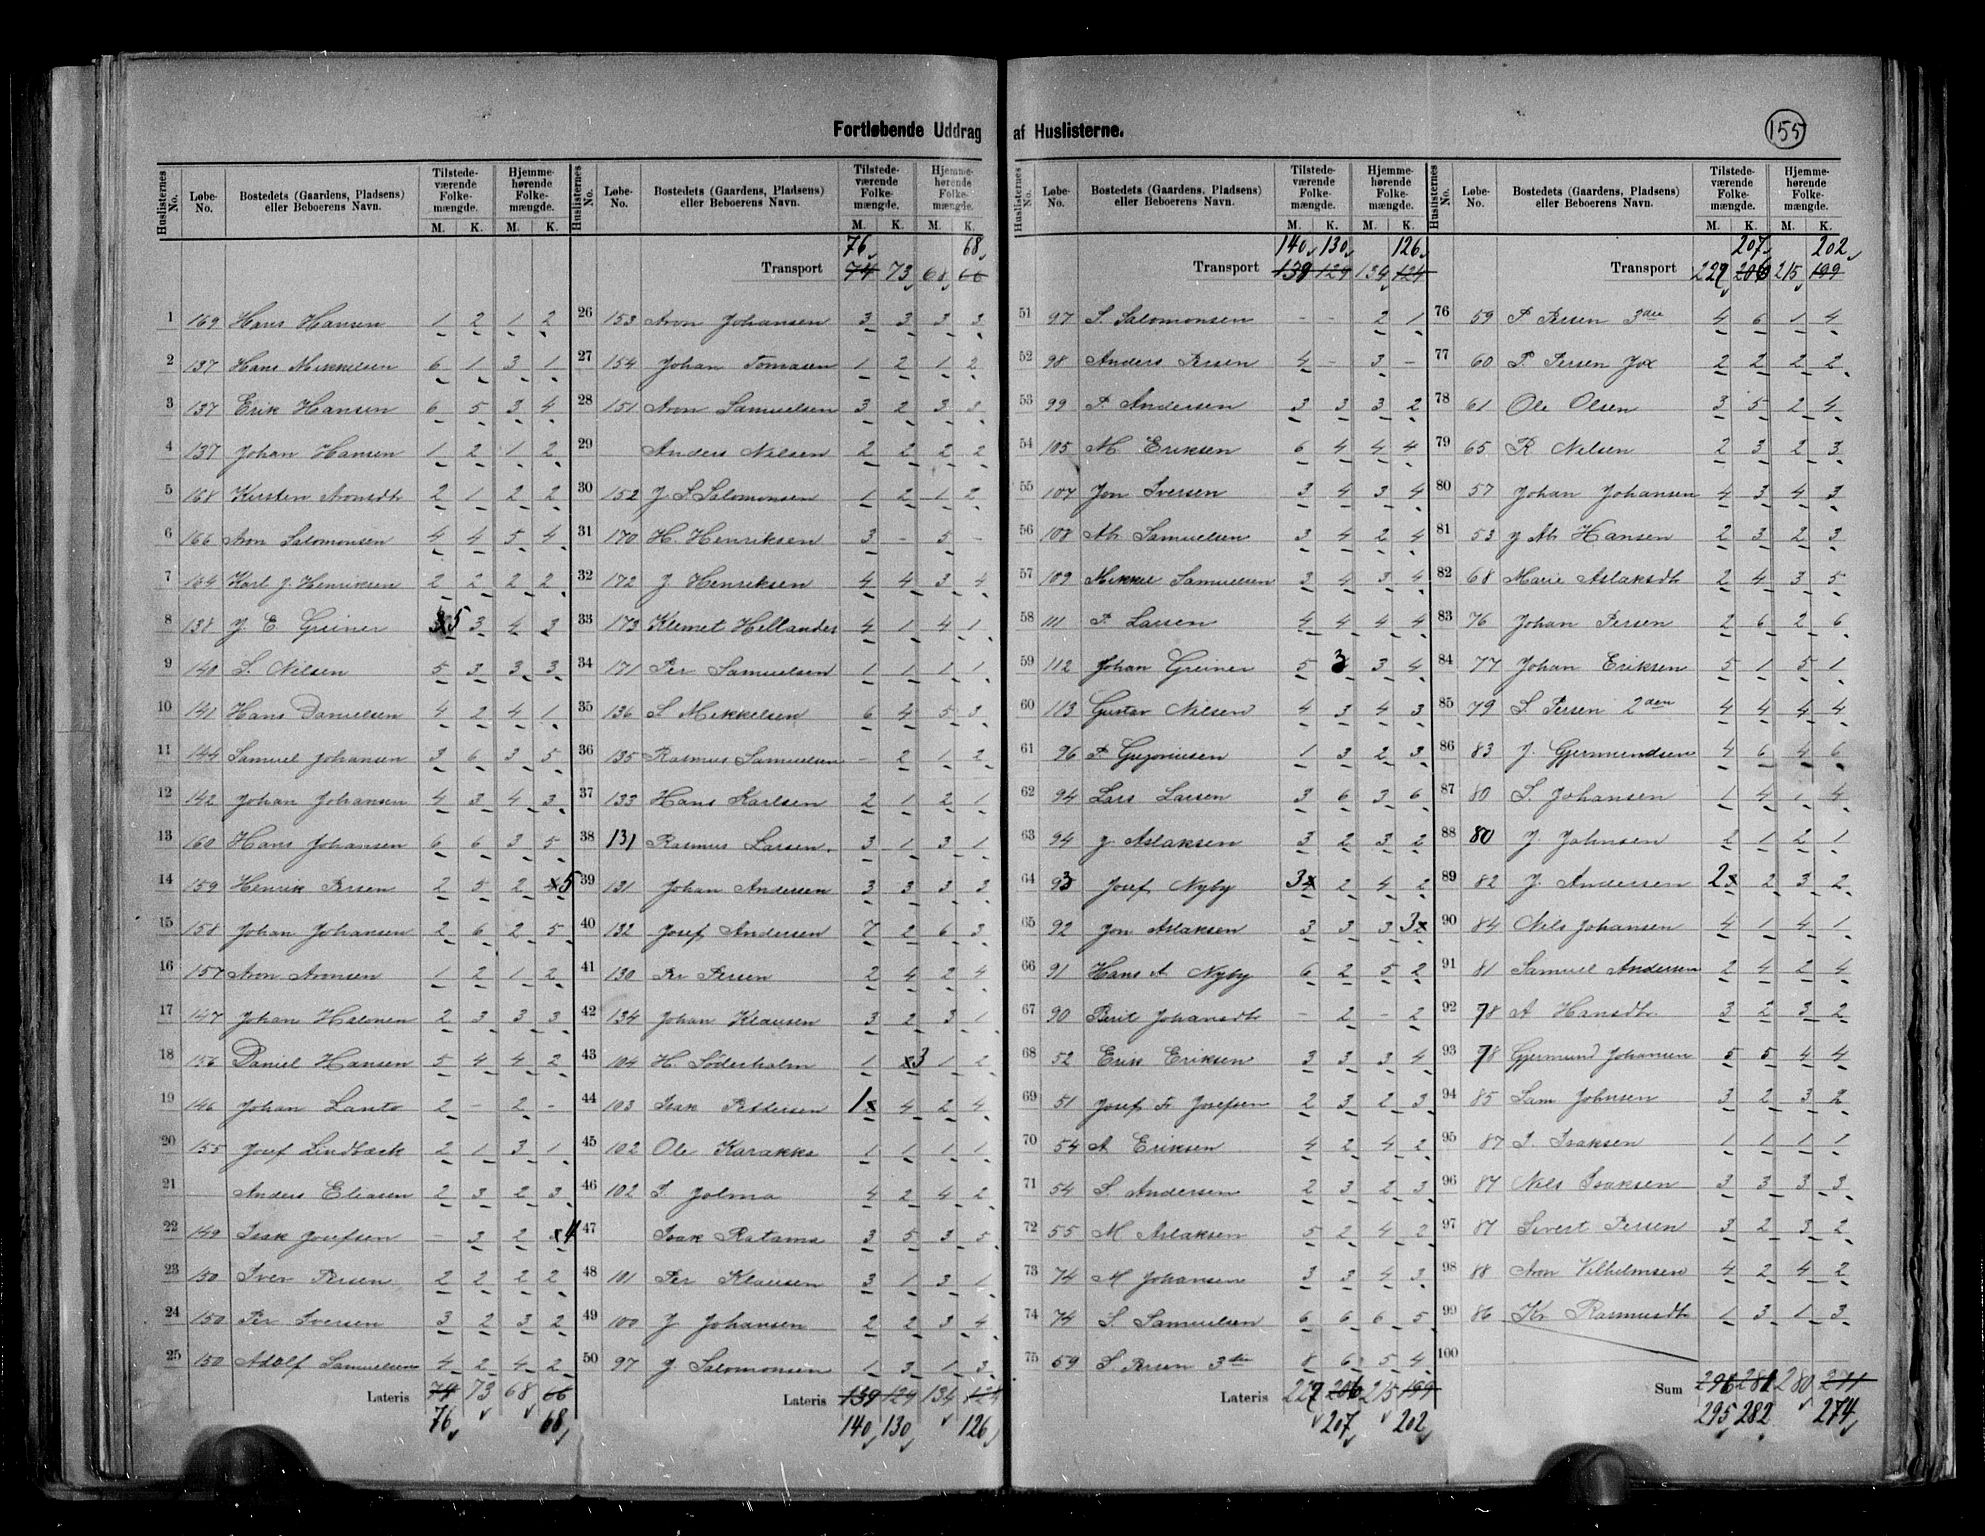 Fortløbende Uddrag af Huslisterne.
155
Huslisternes No. Løbe-No. Bostedets (Gaardens, Pladsens) eller Beboerens Navn. Tilstedeværende Folkemængde. M. K. Hjemmehørende Folkemængde. M. K.
1 169 Hans Hansen 1 2 1 2
2 137 Hans Mikkelsen 6 1 3 1
3 137 Erik Hansen 6 5 3 4
4 137 Johan Hansen 1 2 1 2
5 168 Kirsten Aronsdtr 2 1 2 2
6 166 Aron Salomonsen 4 4 5 4
7 164 Karl J. Henriksen 2 2 2 2
8 138 J. E. Greiner 5 3 4 3
9 140 S. Nilsen 5 3 3 3
10 141 Hans Danielsen 4 2 4 1
11 144 Samuel Johansen 3 6 3 5
12 142 Johan Johansen 4 3 4 3
13 160 Hans Johansen 6 6 3 5
14 159 Henrik Persen 2 5 2 5
15 158 Johan Johansen 2 6 2 5
16 157 Aron Aronsen 1 2 1 2
17 147 Johan Halonen 2 3 3 3
18 156 Daniel Hansen 5 4 4 2
19 146 Johan Lanto 2 - 2 -
20 155 Josef Lindbäck 2 1 3 1
21 Anders Eliasen 2 3 2 3
22 149 Isak Josefsen - 3 2 4
23 150 Iver Persen 2 2 2 2
24 150 Per Iversen 3 2 3 2
25 150 Adolf Samuelsen 4 2 4 2
Lateris 74 73 68 66
76 68
Huslisternes No. Løbe-No. Bostedets (Gaardens, Pladsens) eller Beboerens Navn. Tilstedeværende Folkemængde. M. K. Hjemmehørende Folkemængde. M. K.
76 68
Transport 74 73 68 66
26 153 Aron Johansen 3 3 3 3
27 154 Johan Tomasen 1 2 1 2
28 151 Aron Samuelsen 3 2 3 3
29 Anders Nilsen 2 2 2 2
30 152 J. S. Salomonsen 1 2 1 2
31 170 H. Henriksen 3 - 5 -
32 172 J. Henriksen 4 4 3 4
33 173 Klemet Hellander 4 1 4 1
34 171 Per Samuelsen 1 1 1 1
35 136 S. Mikkelsen 6 4 5 3
36 135 Rasmus Samuelsen - 2 1 2
37 133 Hans Karlsen 2 1 2 1
38 131 Rasmus Larsen 3 1 3 1
39 131 Johan Andersen 3 3 3 3
40 132 Josef Andersen 7 2 6 3
41 130 Per Persen 2 4 2 4
42 134 Johan Klausen 3 2 3 1
43 104 H. Söderholm 1 3 1 2
44 103 Isak Pettersen 1 4 2 4
45 102 Ole Karakka 1 1 1 1
46 102 I. Jolma 4 2 4 2
47 Isak Ratama 3 5 3 5
48 101 Per Klausen 3 1 3 1
49 100 J Johansen 2 2 3 4
50 97 J. Salomonsen 1 3 1 3
Lateris 139 129 134 124
140 130 126
Huslisternes No. Løbe-No. Bostedets (Gaardens, Pladsens) eller Beboerens Navn. Tilstedeværende Folkemængde. M. K. Hjemmehørende Folkemængde. M. K.
140 130 126
Transport 139 129 134 124
51 97 S. Salomonsen - - 2 1
52 98 Anders Persen 4 - 3 -
53 99 P. Andersen 3 3 3 2
54 105 M. Eriksen 6 4 4 4
55 107 Jon Iversen 3 4 3 4
56 108 Ab. Samuelsen 3 4 2 4
57 109 Mikkel Samuelsen 3 4 3 4
58 111 P. Larsen 4 4 4 4
59 112 Johan Greiner 5 3 3 4
60 113 Gustav Nilsen 4 3 4 3
61 96 P. Grejoniusen 1 3 2 3
62 94 Lars Larsen 3 6 3 6
63 94 J. Aslaksen 3 2 3 2
64 93 Josef Nyby 3 2 4 2
65 92 Jon Aslaksen 3 3 3 3
66 91 Hans A Nyby 6 2 5 2
67 90 Berit Johansdtr - 2 - 2
68 52 Erik Eriksen 3 3 3 4
69 51 Josef Fr Josefsen 2 3 2 3
70 54 A Eriksen 4 2 4 2
71 54 S. Andersen 2 3 2 3
72 55 M Aslaksen 5 2 4 2
73 74 M Johansen 3 3 4 3
74 74 S. Samuelsen 6 6 6 5
75 59 S. Persen 3die 8 6 5 4
Lateris 227 206 215 199
207 202
Huslisternes No. Løbe-No. Bostedets (Gaardens, Pladsens) eller Beboerens Navn. Tilstedeværende Folkemængde. M. K. Hjemmehørende Folkemængde. M. K.
207 202
Transport 227 206 215 199
76 59 P Persen 3die 4 6 1 4
77 60 P. Persen Jox 2 2 2 2
78 61 Ole Olsen 3 5 2 4
79 65 R Nilsen 2 3 2 3
80 57 Johan Johansen 4 3 4 3
81 53 J Ab Hansen 2 3 2 3
82 68 Marie Aslaksdtr 2 4 3 5
83 76 Johan Persen 2 6 2 6
84 77 Johan Eriksen 5 1 5 1
85 79 S. Persen 2den 4 4 4 4
86 83 J. Gjermundsen 4 6 4 6
87 80 S. Johansen 1 4 1 4
88 80 J. Johnsen 2 1 2 1
89 82 J. Andersen 2 2 3 2
90 84 Nils Johansen 4 1 4 1
91 81 Samuel Andersen 2 4 2 4
92 78 A Hansdtr 3 2 3 2
93 78 Gjermund Johansen 5 5 4 4
94 85 Sam Johnsen 3 2 3 2
95 87 I. Isaksen 1 1 1 1
96 87 Nils Isaksen 3 3 3 3
97 87 Sivert Persen 3 2 3 2
98 88 Aron Vilhelmsen 4 2 4 2
99 86 Kr Rasmusdtr 1 3 1 3
100
Sum 296 281 280 271
295 282 274